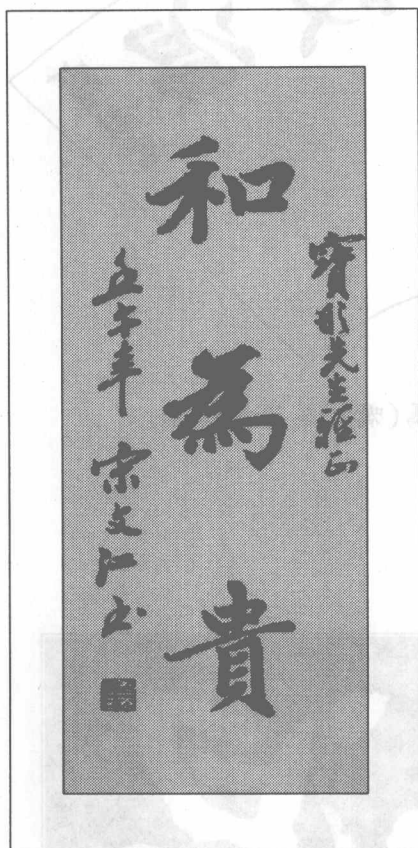 寶彤先生雅正
和為貴
壬午年 宋文江书